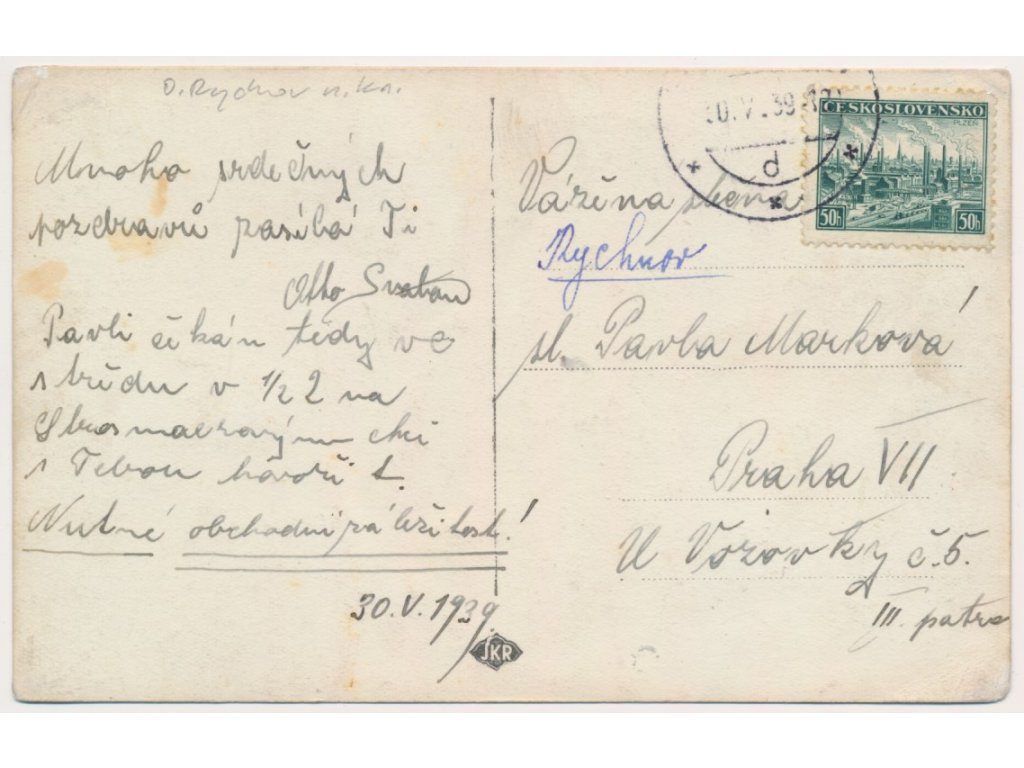 O. Rychnov n. Kn.
Mnoho srdečných
pozdravů posílá Ti
Otto
Pavli čekám tedy ve
středu v 1/2 2 na
chci
s Tebou hovořit.
Nutné obchodní záležitosti!
30.V.1939.
JKR
30.V.39
d
ČESKO-SLOVENSKO
PLZEŇ
50h 50h
Vážená slečna
Rychnov
sl. Pavla Marková
Praha VII.
U Vozovky č.5.
III. patro